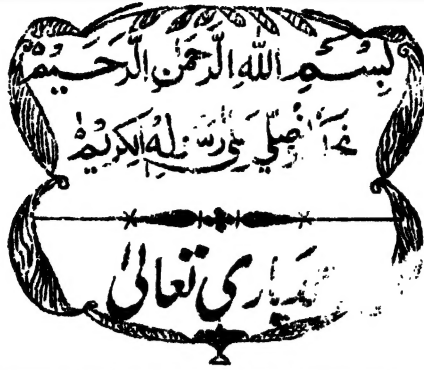 بِسْمِ اللّٰهِ الرَّحْمٰنِ الرَّحِيْمِ
نُصَلِّي عَلٰى رَسُوْلِهِ الْكَرِيْمِ
باری تعالیٰ